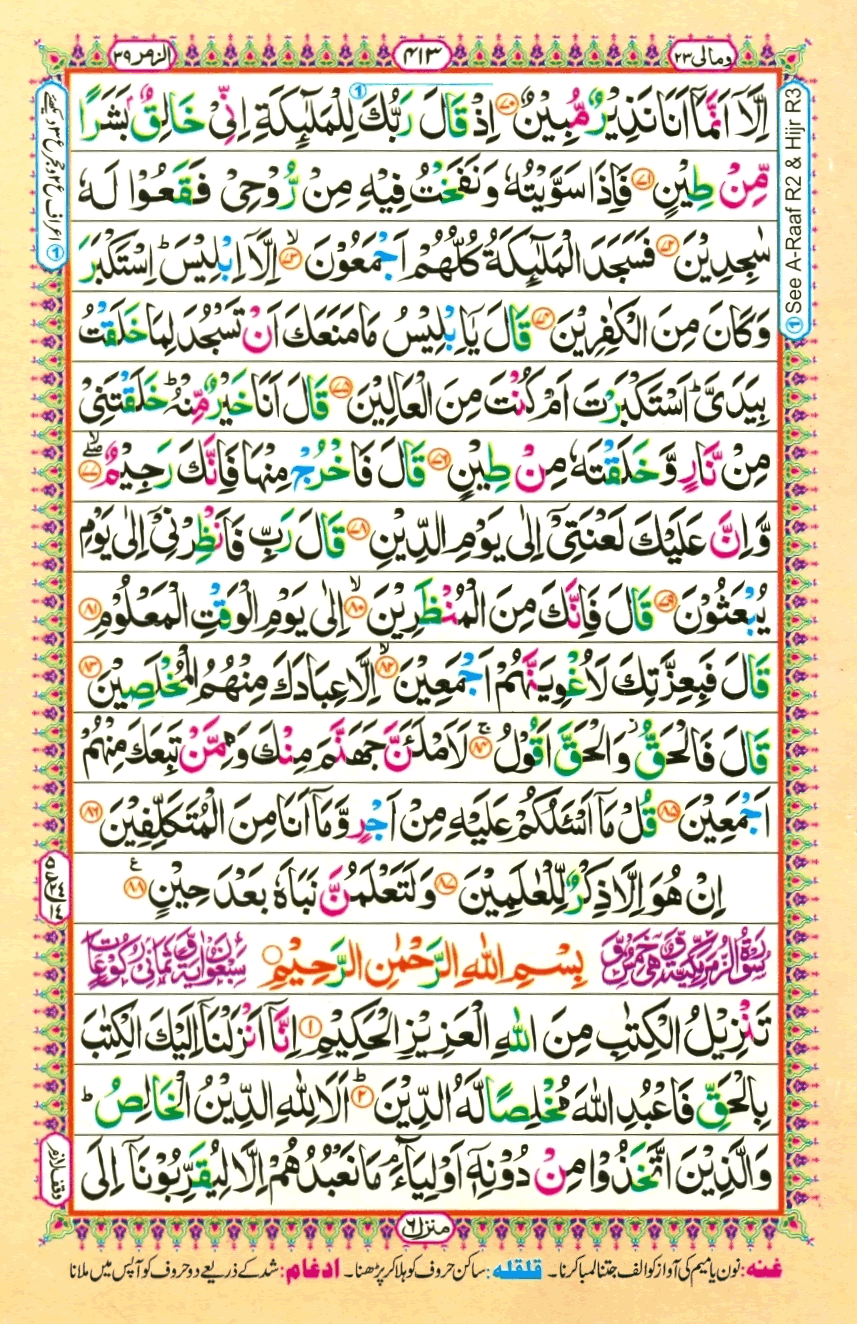 ومالی ۲۳
۴۱۳
الزمر ۳۹
اِلَّاۤ اَنَّمَاۤ اَنَا نَذِیْرٌ مُّبِیْنٌ ﴿۷۰﴾ اِذْ قَالَ رَبُّكَ لِلْمَلٰٓىِٕكَةِ اِنِّیْ خَالِقٌۢ بَشَرًا
مِّنْ طِیْنٍ ﴿۷۱﴾ فَاِذَا سَوَّیْتُهٗ وَ نَفَخْتُ فِیْهِ مِنْ رُّوْحِیْ فَقَعُوْا لَهٗ
سٰجِدِیْنَ ﴿۷۲﴾ فَسَجَدَ الْمَلٰٓىِٕكَةُ كُلُّهُمْ اَجْمَعُوْنَ ﴿۷۳﴾ۙ اِلَّاۤ اِبْلِیْسَ ؕ اِسْتَكْبَرَ
وَ كَانَ مِنَ الْكٰفِرِیْنَ ﴿۷۴﴾ قَالَ یٰۤاِبْلِیْسُ مَا مَنَعَكَ اَنْ تَسْجُدَ لِمَا خَلَقْتُ
بِیَدَیَّ ؕ اَسْتَكْبَرْتَ اَمْ كُنْتَ مِنَ الْعَالِیْنَ ﴿۷۵﴾ قَالَ اَنَا خَیْرٌ مِّنْهُ ؕ خَلَقْتَنِیْ
مِنْ نَّارٍ وَّ خَلَقْتَهٗ مِنْ طِیْنٍ ﴿۷۶﴾ قَالَ فَاخْرُجْ مِنْهَا فَاِنَّكَ رَجِیْمٌ ﴿۷۷﴾ۚۖ
وَّ اِنَّ عَلَیْكَ لَعْنَتِیْۤ اِلٰی یَوْمِ الدِّیْنِ ﴿۷۸﴾ قَالَ رَبِّ فَاَنْظِرْنِیْۤ اِلٰی یَوْمِ
یُبْعَثُوْنَ ﴿۷۹﴾ قَالَ فَاِنَّكَ مِنَ الْمُنْظَرِیْنَ ﴿۸۰﴾ۙ اِلٰی یَوْمِ الْوَقْتِ الْمَعْلُوْمِ ﴿۸۱﴾
قَالَ فَبِعِزَّتِكَ لَاُغْوِیَنَّهُمْ اَجْمَعِیْنَ ﴿۸۲﴾ۙ اِلَّا عِبَادَكَ مِنْهُمُ الْمُخْلَصِیْنَ ﴿۸۳﴾
قَالَ فَالْحَقُّ ؗ وَ الْحَقَّ اَقُوْلُ ﴿۸۴﴾ۚ لَاَمْلَـَٔنَّ جَهَنَّمَ مِنْكَ وَ مِمَّنْ تَبِعَكَ مِنْهُمْ
اَجْمَعِیْنَ ﴿۸۵﴾ قُلْ مَاۤ اَسْـَٔلُكُمْ عَلَیْهِ مِنْ اَجْرٍ وَّ مَاۤ اَنَا مِنَ الْمُتَكَلِّفِیْنَ ﴿۸۶﴾
اِنْ هُوَ اِلَّا ذِكْرٌ لِّلْعٰلَمِیْنَ ﴿۸۷﴾ وَ لَتَعْلَمُنَّ نَبَاَهٗ بَعْدَ حِیْنٍ ﴿۸۸﴾ ع
سورة الزمر مكية وهی خمس و
بِسْمِ اللهِ الرَّحْمٰنِ الرَّحِیْمِ
سبعون آیة و ثمانی ركوعات
تَنْزِیْلُ الْكِتٰبِ مِنَ اللهِ الْعَزِیْزِ الْحَكِیْمِ ﴿۱﴾ اِنَّاۤ اَنْزَلْنَاۤ اِلَیْكَ الْكِتٰبَ
بِالْحَقِّ فَاعْبُدِ اللهَ مُخْلِصًا لَّهُ الدِّیْنَ ﴿۲﴾ؕ اَلَا لِلّٰهِ الدِّیْنُ الْخَالِصُ ؕ
وَ الَّذِیْنَ اتَّخَذُوْا مِنْ دُوْنِهٖۤ اَوْلِیَآءَ ۘ مَا نَعْبُدُهُمْ اِلَّا لِیُقَرِّبُوْنَاۤ اِلَی
① See A-Raaf R2 & Hijr R3
منزل ۶
غنہ: نون یا میم کی آواز کو الف جتنا لمبا کرنا۔ قلقلہ: ساکن حروف کو ہلا کر پڑھنا۔ ادغام: شد کے ذریعے دو حروف کو آپس میں ملانا